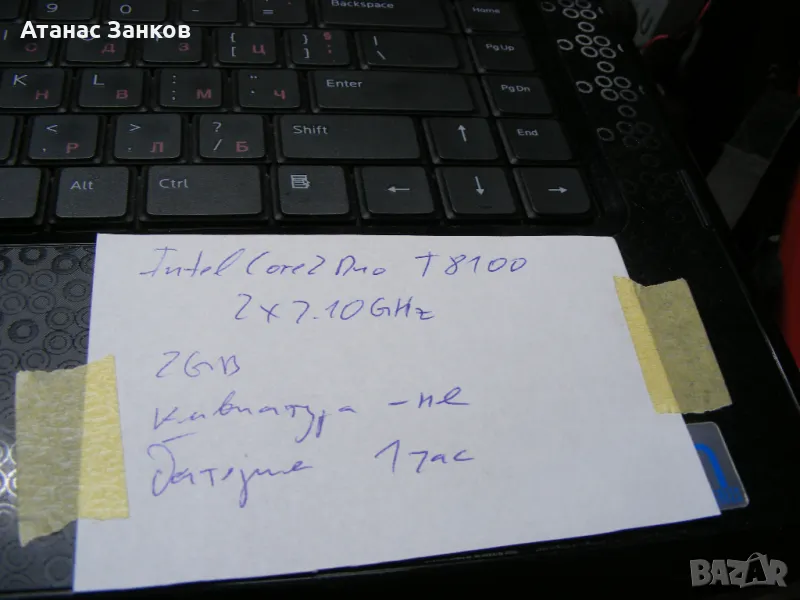 Атанас Занков
9
0
Backspace
Home
О
П
{ [ Ц
} ] §
| \
PgUp
K Н
L В
: ; М
" ' Ч
Enter
PgDn
< , Р
> . Л
? / Б
Shift
↑
End
Alt
Ctrl
←
↓
→
Intel Core2Duo T8100
2x2.10GHz
2GB
клавиатура - не
батерия 1 час
BAZAR